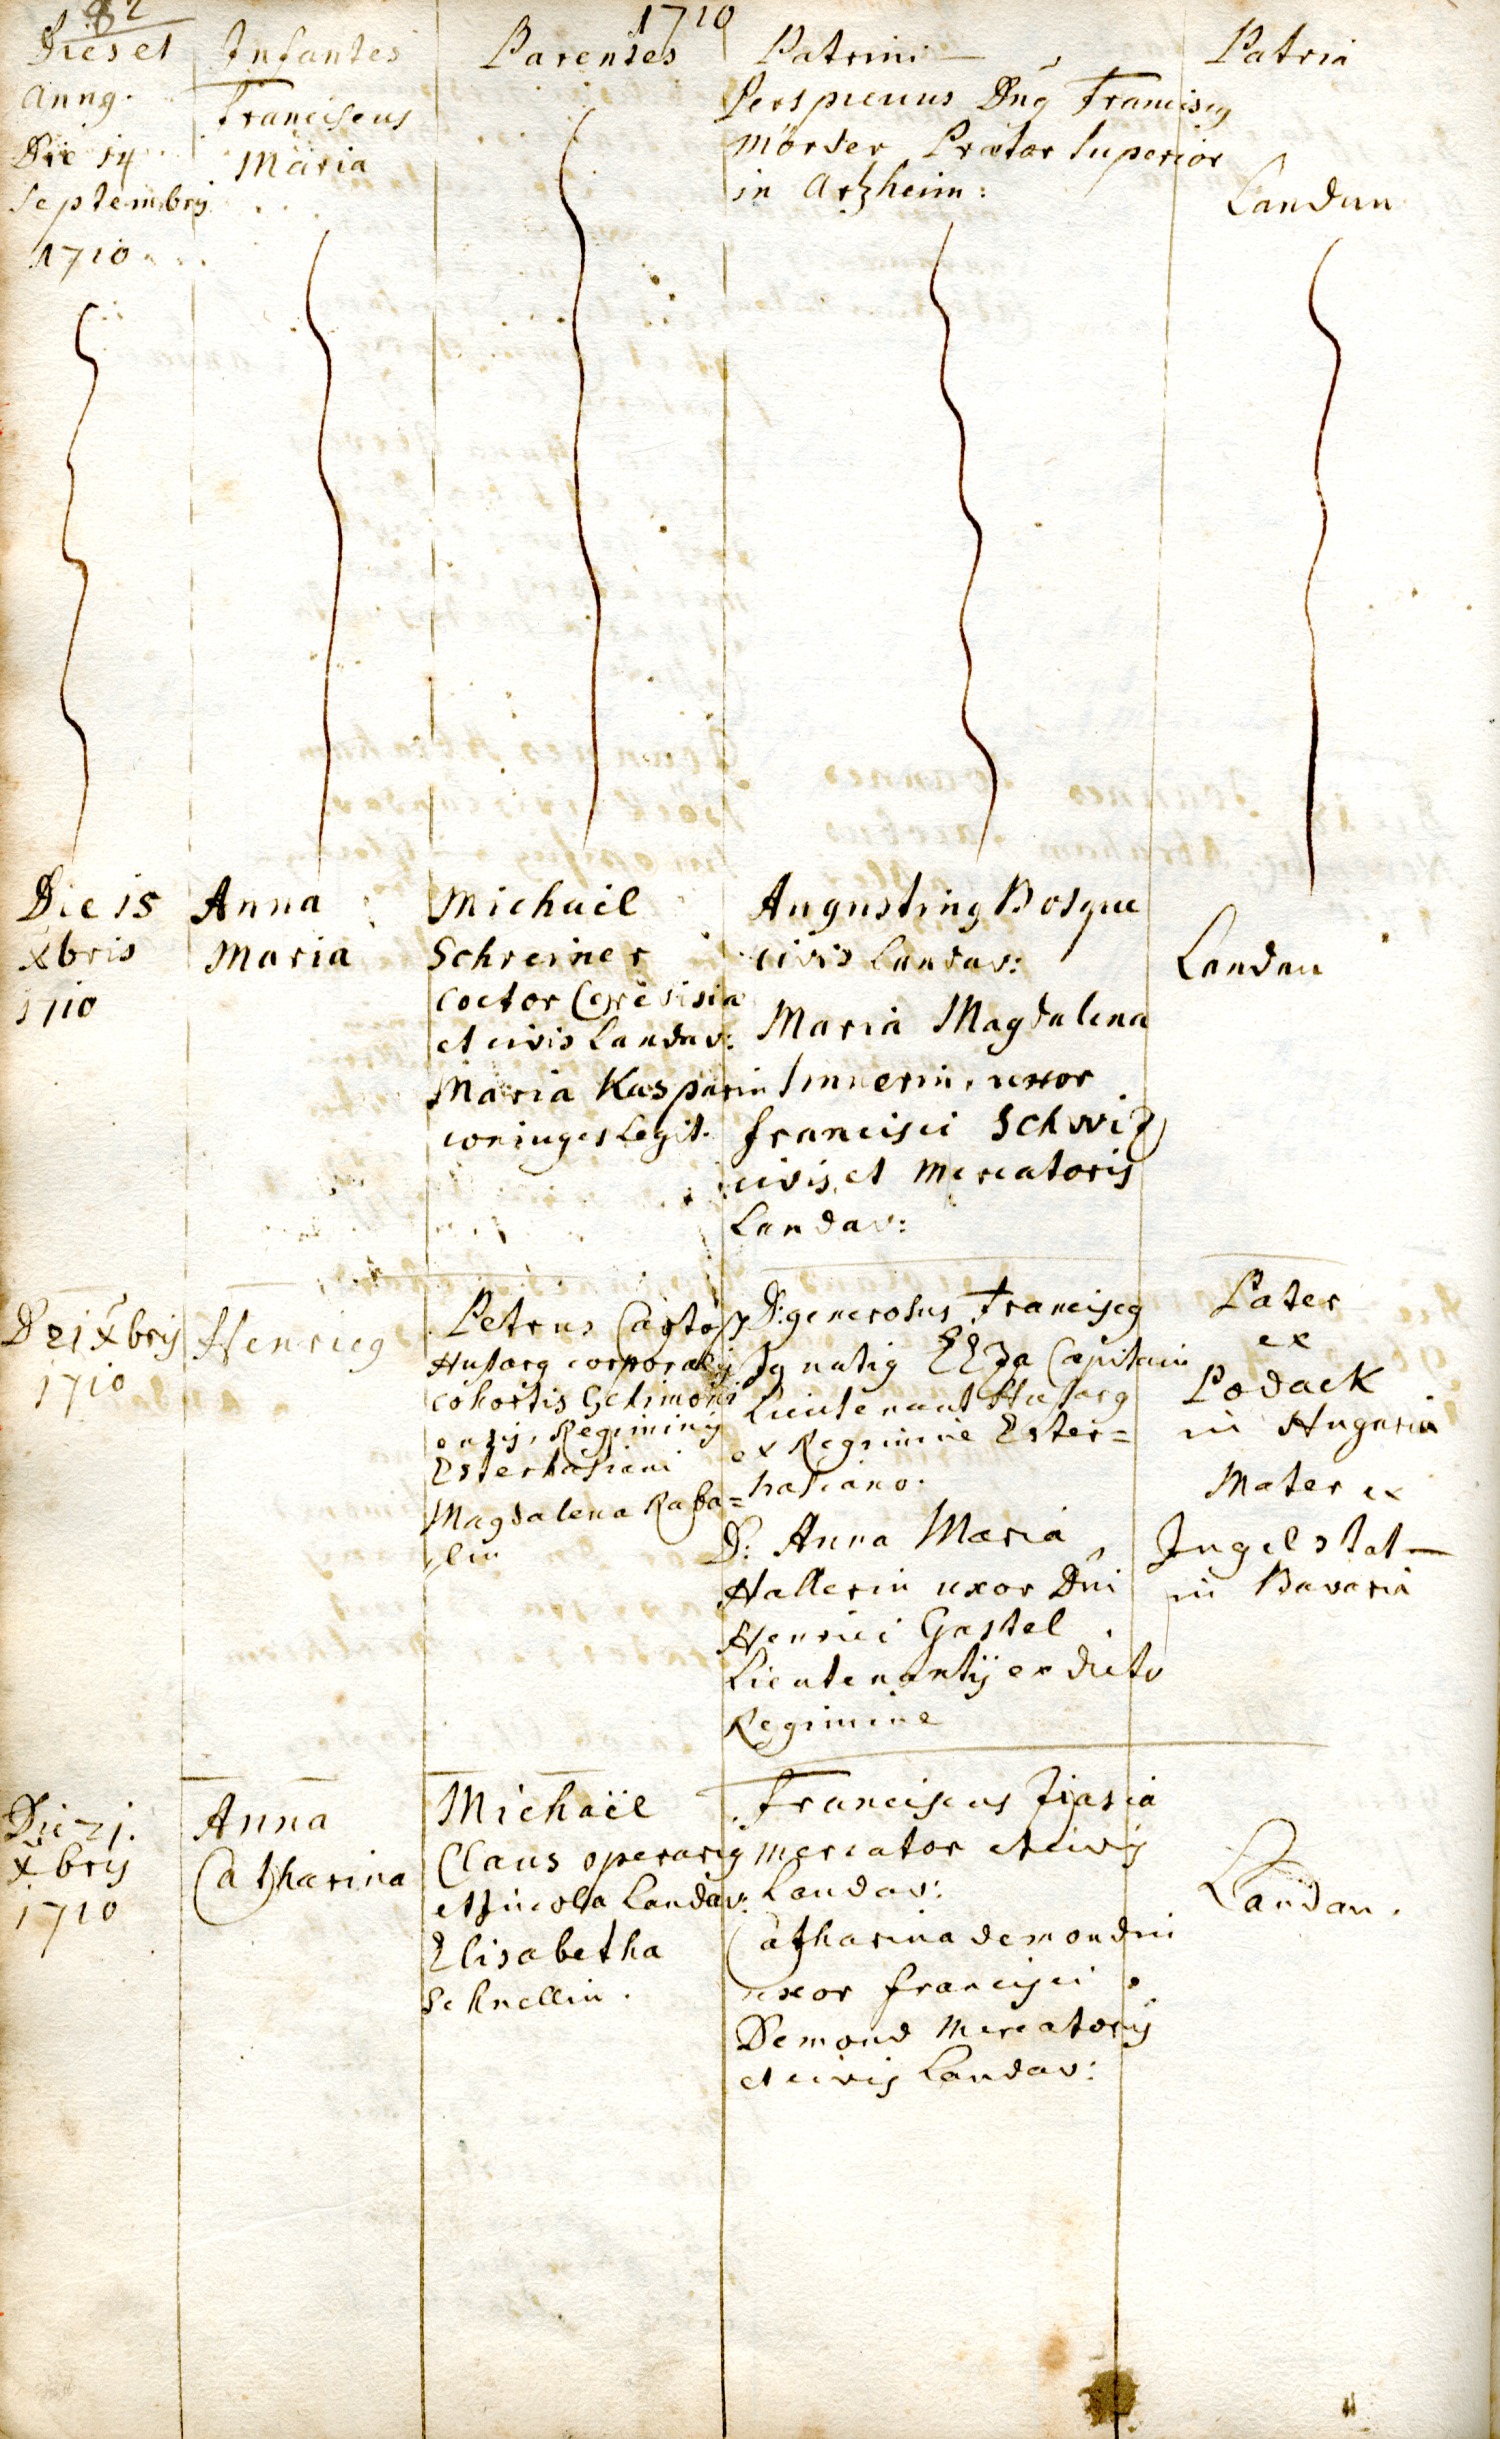 82
1710
Dies et
Anng.
Infantes
Parentes
Patrini
Patria
Die 14
Septembrij
1710
Franciscus
Maria
Perspicuus Dng Franciscg
Mörder Prætor Superior
in Arzheim:
Landau
Die 15
Xbris
1710
Anna
Maria
Michael
Schreiner
Coctor Cerevisiæ
et civis Landav:
Maria Kasparin
coniuges Legit.
Augusting Bosque
civis Landav:
Maria Magdalena
uxor
francisci Schwiz
civis, et Mercatoris
Landav:
Landau
D 21 Xbrij
1710
Henricg
Petrus
Husarg corporalij
cohortis
Regiminij
Esterhasiani
Magdalena
lin
D: generosus Franciscg
Ignatig Capitain
Lieutenant Husarg
ex Regimine Ester=
hasiano.
D: Anna Maria
Hallerin uxor Dni
Henrici Gastel
Lieutenantij ex dicto
Regimine
Pater
ex
Podack
in Hugaria
Mater ex
Ingelstat
in Bavaria
Die 21.
Xbrij
1710
Anna
Catharina
Michaël
Claus operarig
et incola Landav:
Elisabetha
Schnellin.
Franciscus
mercator et civij
Landav:
Catharina demondin
uxor francisci
Demond Mercatorij
et civij Landav:
Landau.